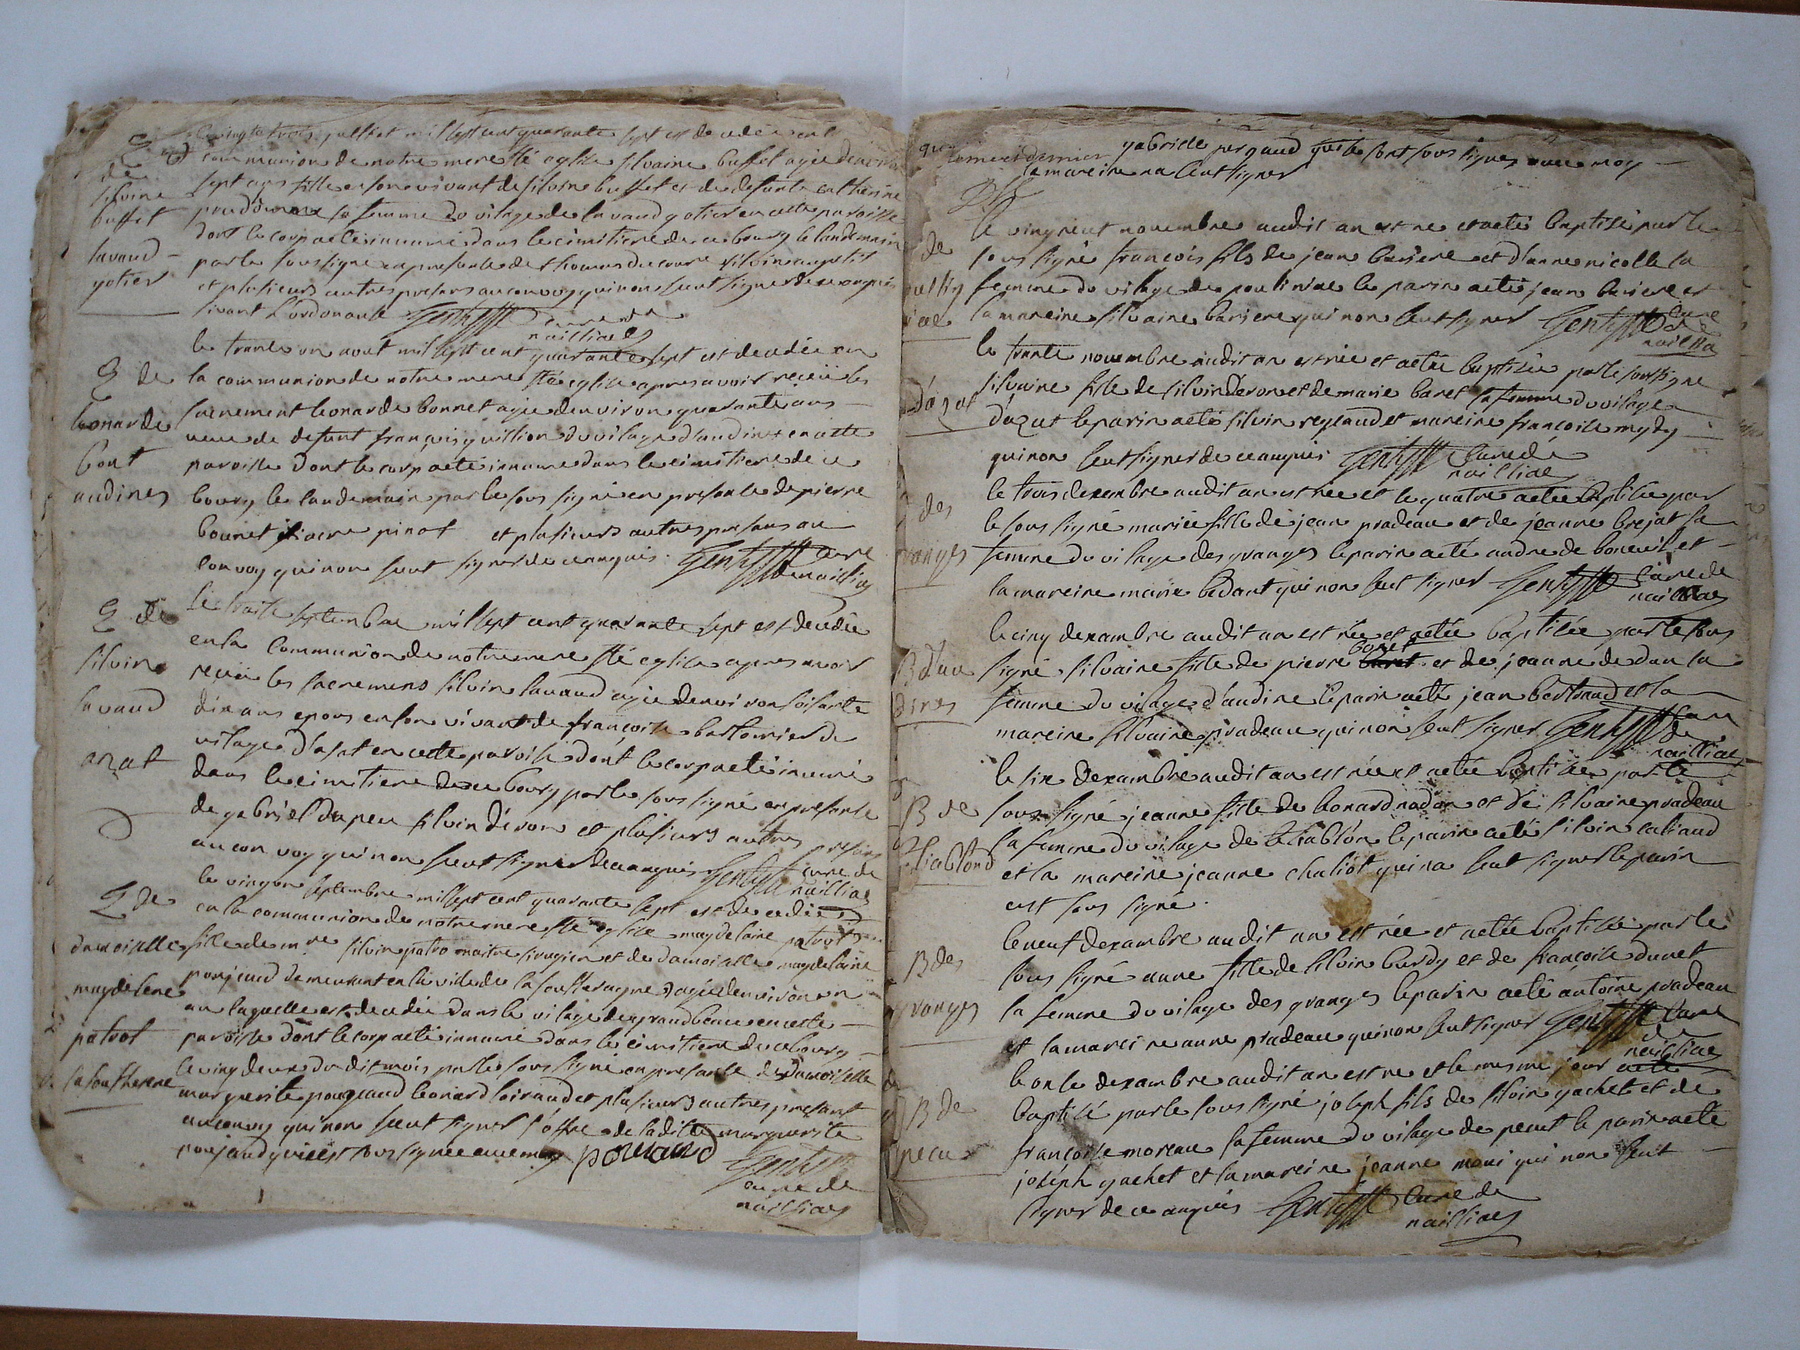 Le vingt et trois juillet mil sept cent quarante sept est decedée en la
communion de notre mere ste eglise silvaine buffet agée denviron
sept ans fille en son vivant de silvin buffet et de defunte catherine
sa femme du vilage de lavaud gotier en cette paroisse
dont le corp a été innumé dans le cimitiere de ce bourg le landemain
par le sous signé en presente de silvin petit
et plusieurs autres presens au convoy qui non seut signer de ce anquis
sivant L'ordonance Gentyfft curé de
nailliac
E de
silvine
buffet
lavaud
gotier
le trante un aout mil sept cent quarante sept est decedée en
la communion de notre mere ste eglise apres avoir reçeü les
sacrement leonarde bonnet agée denviron quarante ans
veuve de defunt françois guillion du vilage daudines en cette
paroisse dont le corp a été innumé dans le cimitiere de ce
bourg le landemain par le sous signé en presente de pierre
bounet pierre pinot et plusieurs autres presens au
convoy qui non seut signer de ce anquis Gentyfft curé
de nailliac
E de
leonarde
bont
audines
le traise septembre mil sept cent quarante sept est decedée
en la communion de notre mere ste eglise apres avoir
reçeü les sacremens silvin lavaud agée denviron soisante
dix ans epous en son vivant de françoise bartomier du
vilage d'asat en cette paroisse dont le corp a été innumé
dans le cimitiere de ce bourg par le sous signé en presente
de gabriel dupeu silvin déron et plusieurs autres presens
au convoy qui non seut signer de ce anquis Gentyfft curé de
nailliac
E de
silvin
lavaud
azat
le vingt un septembre mil sept cent quarante sept est decedée
en la communion de notre mere ste eglise magdelaine patrot
fille de mre silvin patro maitre sirugien et de damoiselle magdelaine
poujaud demeurant en la vile de la souterragne agée denviron un
an laquelle est decedée dans le vilage de grandbeau en cette
paroisse dont le corp a été innumé dans le cimitiere du ce bourg
le vingt deux du dit mois par le sous signé en presente de damoiselle
marguerite pougeaud leonard loiraud et plusieurs autres presant
au convoy qui non seut signer l'offre de la ditte marguerite
poujaud qui cest sous signée avec moy pouiaud
Gentyfft
curé de
nailliac
E de
damoiselle
magdelene
patrot
la soutterene
gabrielle pergaud qui se sont sous signés avec moy
la mareine na seut signer
le vingt neuf novembre audit an est né et a eté baptisé par le
sous signé françois fils de jean bariere et d'anne nicolle sa
femme du vilage de poulinine le parin a eté jean bariere et
la mareine silvaine bariere qui non seut signer Gentyfft curé
de
nailliac
le trante novembre audit an est née et a eté baptisée par le sous signé
silvaine fille de silvin déron et de marie baret sa femme du vilage
dazat le parin a eté silvin reytaud et mareine françoise
qui non seut signer de ce anquis Gentyfft curé de
nailliac
d'azat
le trois dexambre audit an est née et le quatre a eté baptisée par
le sous signé mariée fille de jean pradeau et de jeanne brejat sa
femme du vilage des granges le parin a eté andre de boneuil et
la mareine marie bedant qui non seut signer Gentyfft curé de
nailliac
des
ranges
le cinq dexambre audit an est née et a eté baptisée par le sous
signé silvaine fille de pierre baret et de jeanne dedan sa
femme du vilage d'audine le parin a eté jean bertrand et la
mareine silvaine pradeau qui non seut signer Gentyfft curé
de
nailliac
B d'au
dines
le six dexambre audit an est née et a eté baptisée par le
sous signé jeanne fille de leonard nadon et de silvaine pradeau
sa femme du vilage de le parin a eté silvin caliaud
et la mareine jeanne chaliot qui na seut signer le parin
est sous signé.
B de
le neuf dexambre audit an est née et a eté baptisée par le
sous signé anne fille de silvin bardy et de françoise dunet
sa femme du vilage des granges le parin a eté antoine pradeau
et la mareine anne pradeau qui non seut signer Gentyfft curé
de
nailliac
B des
granges
le onse dexambre audit an est né et le mesme jour a eté
baptisé par le sous signé joseph fils de silvin gachet et de
françoise moreau sa femme du vilage de pecut le parin a eté
joseph gachet et la mareine jeanne moui qui non seut
signer de ce anquis Gentyfft curé de
nailliac
B de
pecu